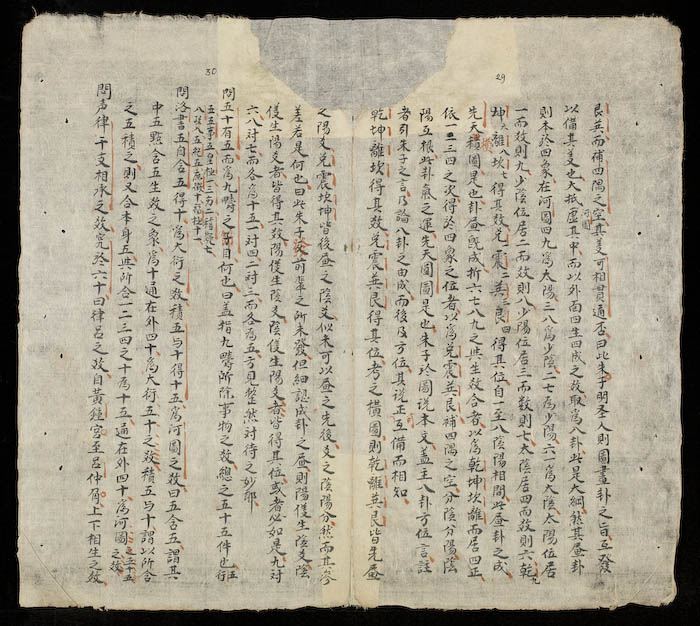 29
艮巽而補四隅之空其義可相貫通否曰此朱子明圣人則圖畫卦之旨互發
河圖
以備其变也大抵虚其中而以外面四生四成之数取爲八卦此是大綱然其畫卦
則本於四象在河圖四九爲太陽三八爲少陰二七爲少陽六一爲太陰太陽位居
一而数則九少陰位居二而数則八少陽位居三而数則七太陰居四而数則六乾九
坤離八坎七得其数兌震二巽三艮四得其位自一至八陰陽相間此畫卦之成
先天橫圖是也卦畫旣成折六七八九之共生数合者以爲乾坤坎離而居四正
依一二三四之次得於四象之位者以爲兌震巽艮補四隅之空分陰分陽陰
陽互根此卦氣之運先天圓圖是也朱子於圖說本文盖主八卦方位言註
者引朱子之言乃論八卦之由成而後及方位其說正互備而相知
乾坤離坎得其数兌震巽艮得其位考之横圖則乾離巽艮皆先畫
之陽爻兌震坎坤皆後畫之陰爻似未可以畫之先後爻之陰陽分然而其參
差若是何也曰此朱子從前輩之所未發但細認成卦之畫則陽僅生陰爻陰
僅生陽爻者皆得其数陽僅生陰爻陰僅生陽爻者皆得其位或者必如是九對
六八對七而各爲十五一對四二對三而各爲五方見整然對待之妙耶
30
問五十有五而爲九疇之子目何也曰盖指九疇所除事物之数總之五十五件也五行
五五事五皇極一三而十稽疑七
八政八五紀五庶徵十福極十一
問洛書五自含五得十爲大衍之数積五与十得十五爲河圖之数曰五含五謂其
中五點含五生数之象爲十通在外四十爲大衍五十之数積五与十謂以所含
之五積之則又合本身五共所合一二三四之十爲十五通在外四十爲河圖之数五十五
問声律干支相承之数究於六十曰律呂之数自黃鍾宮至呂仲角上下相生之数